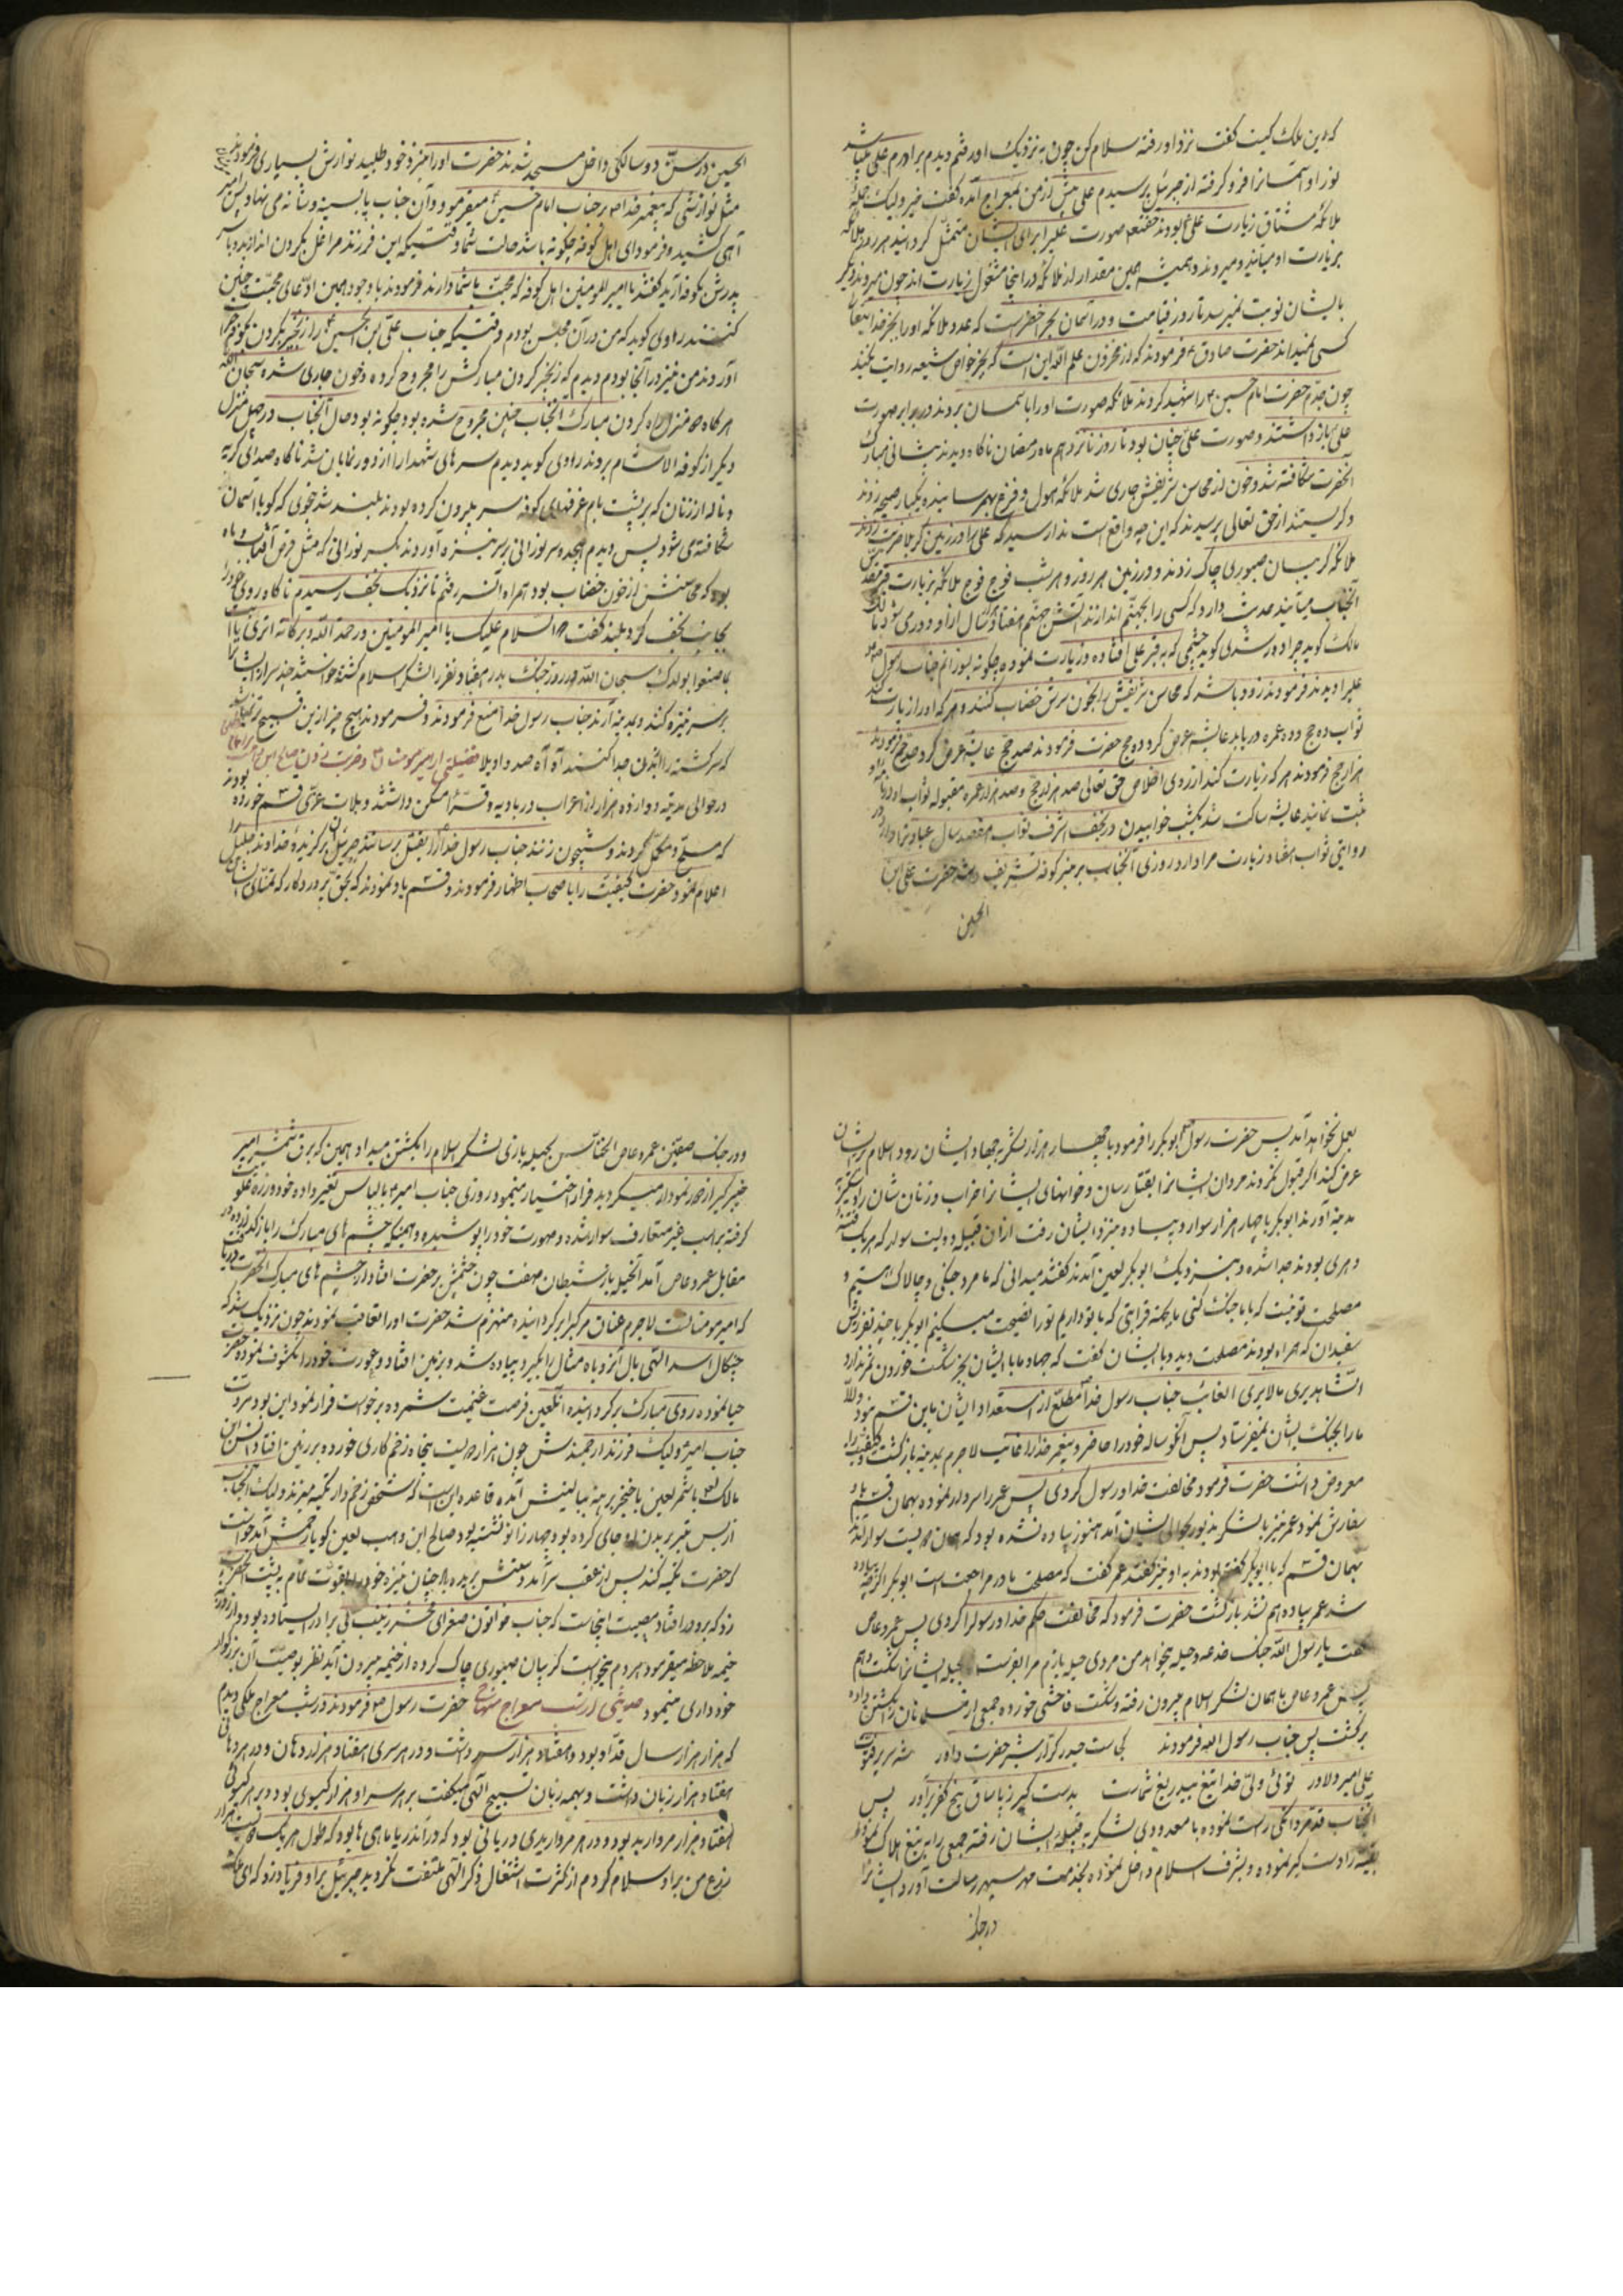 که این ملک کیست گفت نزد او رفته سلام کن چون به نزدیک او رفتم دیدم برادرم علی میباشد
نور او آسمانرا فرو گرفته از جبرئیل پرسیدم علی پیش از من بمعراج آمده گفت خیر ولیک جمله
ملائکه مشتاق زیارت علی بودند حقتعالی صورت علیرا برای ایشان متمثل گردانید هر روز ملائکه
بزیارت او میآیند و میروند و همیشه همین مقدار از ملائکه در اینجا مشغول زیارت اند چون میروند دیگر
بایشان نوبت نمیرسد تا روز قیامت و در آسمان بحر اخضر است که عدد ملائکه او را بجز خدایتعالی
کسی نمیداند حضرت صادق فرمودند که از مخزون علم الله این است که بجز خواص شیعه روایت نکنید
چون جدم حضرت امام حسین را شهید کردند ملائکه صورت او را باسمان بردند در برابر صورت
علی باز داشتند و صورت علی چنان بود تا روز نوزدهم ماه رمضان ناگاه دیدند پیشانی مبارک
آنحضرت شکافته شد و خون از محاسن شریفش جاری شد ملائکه بهول و فزع بهم رسانیده یکبار صیحه زدند
و گریستند از حق تعالی پرسیدند که این چه واقع است ندا رسید که علی را در زمین کربلا ضربت زدند
ملائکه گریبان صبوری چاک زدند و در زمین هر روز و هر شب فوج فوج ملائکه بزیارت قبر مقدس
آنجناب میآیند حدیث دارد که کسی را بجهنم اندازند آتش جهنم هفتاد سال از او دوری شود مالک
مالک گوید چرا دور شدی گوید چشمی که به قبر علی افتاده و زیارت نموده چگونه بسوزانم جناب رسول
علیرا دیدند فرمودند زود باشد که محاسن شریفش را بخون سرش خضاب کنند و هر که او را زیارت کند
ثواب ده حج و ده عمره دریابد عایشه عرض کرد ده حج حضرت فرمودند صد حج عایشه عرض کرد صد حج فرمودند
هزار حج فرمودند هر که زیارت کند از روی اخلاص حق تعالی صد هزار حج و صد هزار عمره مقبوله ثواب او در نامه
ثبت نمایند عایشه ساکت شد یکشب خوابیدن در نجف اشرف ثواب هفتصد سال عبادت دارد
روایتی ثواب هفتاد زیارت مرا دارد روزی آنجناب بر منبر کوفه تشریف داشتند حضرت علی ابن
الحسین
الحسین در سن دو سالگی داخل مسجد شدند حضرت او را بنزد خود طلبید نوازش بسیاری فرمودند
مثل نوازشی که پیغمبر خدا بر جناب امام حسین میفرمود و آن جناب پا بسینه و شانه می نهاد پس امیر
آهی کشید و فرمود ای اهل کوفه چگونه باشد حالت شما وقتیکه این فرزند مرا غل بگردن اندازند و با سر
پدرش بکوفه آرید گفتند یا امیرالمومنین اهل کوفه که محبت باشما دارند فرمودند با وجود همین ادعای محبت چنین
کنند راوی گوید که من در آن مجلس بودم وقتیکه جناب علی بن الحسین را زنجیر بگردن بکوفه
آوردند من نیز در آنجا بودم دیدم که زنجیر گردن مبارکش را مجروح کرده و خون جاری شده سبحان الله
هرگاه منزل گردن مبارک آنجناب چنین مجروح شده بود چگونه بود حال آنجناب در چهل منزل
دیگر از کوفه الا شام بردند راوی گوید دیدم سرهای شهدا را از دور نمایان شد ناگاه صدای گریه
و ناله از زنان که بر پشت بام غرفهای کوفه سر بیرون کرده بودند بلند شد بنحوی که گویا آسمان
شکافته می شود پس دیدم هیجده سر نورانی بر سر نیزه آوردند یک سر نورانی که مثل قرص آفتاب و ماه
بود که محاسنش از خون خضاب بود همراه آن سر رفتم تا نزدیک نجف رسیدم ناگاه روی خود را
بجانب نجف کرد و بلند گفت السلام علیک یا امیر المومنین و رحمة الله و برکاته اتری یا ابتا
ما صنعوا بولدک سبحان الله در روز جنگ بدر هفتاد نفر از لشکر اسلام کشته خواستند چند سر از ایشان
بر سر نیزه کنند و بمدینه آرند جناب رسول خدا منع فرمودند و فرمودند هیچ چیز از این قبیح تر نمیباشد
که سر کشته را از بدن جدا کنند آه آه صد واویلا فضیلتی از امیر مومنان و ضربت زدن صالح ابن
در حوالی مدینه دوازده هزار از اعراب در بادیه و قریه مسکن داشتند و بلات عزی قسم خورده بودند
که مسلح و مکمل گردند و شبیخون زنند جناب رسول خدا را بقتل رسانند جبرئیل بر گزیده خداوند جلیل
اعلام نمود حضرت کیفیت را با صحاب اظهار فرمودند و قسم یاد نمودند که بحق پروردگار که تمنای ایشان
بعمل نخواهد آمد پس حضرت رسول ابوبکر را فرمود با چهار هزار لشکر بجهاد ایشان رود اسلام بر ایشان
عرض کند اگر قبول نکردند مردان ایشانرا بقتل رسان و خوانهای ایشانرا خراب و زنان شان را دستگیر
بمدینه آورند ابوبکر با چهار هزار سوار و پیاده بنزد ایشان رفت از آن قبیله دویست سوار که هر یک فتنه
دهری بودند جدا شده و بنزدیک ابوبکر لعین آمدند گفتند میدانی که ما مرد جنگی و چالاک هستیم و
مصلحت تو نیست که با ما جنگ کنی ما بجهة قرابتی که با تو داریم تو را نصیحت میکنیم ابوبکر با چند نفر ریش
سفیدان که همراه بودند مصلحت دید و با ایشان گفت که جهاد ما با ایشان بجز شکست خوردن ثمر ندارد
الشاهد یری ما لا یری الغائب جناب رسول خدا مطلع از استعداد ایشان باین قسم نبود والا
ما را بجنگ ایشان نمیفرستاد پس آن گوساله خود را حاضر و پیغمبر خدا را غائب لاجرم بمدینه بازگشت و کیفیت را
معروض داشت حضرت فرمود مخالفت خدا و رسول کردی پس عمر را سردار نموده بهمان قسم باو
سفارش نمود عمر نیز با لشکر مذبور بحوالی ایشان آمد هنوز پیاده نشده بود که همان دویست سوار آمدند
بهمان قسم که با ابوبکر گفته بودند به او نیز گفتند عمر گفت که مصلحت ما در مراجعت است ابوبکر اگرچه پیاده
شد عمر پیاده هم نشد بازگشت حضرت فرمود که مخالفت حکم خدا و رسول را کردی پس عمرو عاص
گفت یا رسول الله جنگ خدعه و حیله میخواهد من مردی حیله بازم مرا بفرست بحیله ایشانرا شکست دهم
پس عمرو عاص با همان لشکر اسلام بیرون رفته و شکست فاحشی خورده جمعی از مسلمانان را بکشتن داده
برگشت پس جناب رسول الله فرمودند کجاست حیدر کرار شیر حضرت داور
علی امیر دلاور توئی ولی خدا تیغ بیدریغ شماست بدست گیر ز پا ساق بیخ کفر برآور پس
آنجناب قد مردانگی راست نموده با معدودی لشکر به قبیله ایشان رفته جمعی را به تیغ هلاک نمود و
بقیه را دستگیر نموده و بشرف اسلام داخل نموده بخدمت مهر سپهر رسالت آورد ایشانرا
در جنگ
و در جنگ صفین عمرو عاص الخناس بحیله بازی لشکر اسلام را بکشتن میداد و همین که برق شمشیر امیر
خیبر گیر از دور نمودار میگردید فرار اختیار مینمود روزی جناب امیر با لباس تغییر داده خود و زره علو
گرفته بر اسب غیر متعارف سوار شده و صورت خود را پوشیده و همینکه چشم های مبارک را باز گذارده در
مقابل عمرو عاص آمد آنحیله باز شیطان صفت چون چشمش بر حضرت افتاد از چشم های مبارک آنحضرت دریافت
که امیر مومنانست لاجرم عنان مرکب را برگردانیده منهزم شد حضرت او را تعاقب نمودند چون نزدیک شد که
چنگال اسد اللهی بال آن روباه مثال را بگیرد پیاده شد و بزمین افتاد و عورت خود را مکشوف نمود حضرت
حیا نموده روی مبارک برگردانیده آنلعین فرصت غنیمت شمرده برخواست فرار نمود این بود مروت
جناب امیر ولیک فرزند ارجمندش چون هزار و نهصد و پنجاه زخم کاری خورده بر زمین افتاد انس ابن
مالک با شمر لعین با خنجر برهنه ببالینش آمده قاعده این است که شخص زخم دار تکیه میزند ولیک آنجناب
از بس تیر بر بدن او جای کرده بود چهار زانو نشسته بود صالح ابن وهب لعین گویا رحمش آمد خواست
که حضرت تکیه کند پس از عقب سر آمد دستش بریده باد چنان نیزه خود را بقوت تمام به پشت آنحضرت
زد که برو در افتاد مصیبت اینجاست که جناب خواتون صغرای محشر زینب لی برادر ایستاده بود و از در
خیمه ملاحظه میفرمود هر دم میخواست گریبان صبوری چاک کرده از خیمه بیرون آید نظر بوصیت آن بزرگوار
خود داری مینمود حدیثی از شب معراج حضرت رسول فرمودند در شب معراج ملکی دیدم
که هزار هزار سال قد او بود و هفتاد هزار سر داشت و در هر سری هفتاد هزار دهان و در هر دهانی
هفتاد هزار زبان داشت و بهمه زبان تسبیح الهی میگفت بر هر سر او هزار گیسوی بود و بر هر گیسوئی
هفتاد هزار مروارید بود و در هر مرواریدی دریائی بود که در آن دریا ماهی ها بود که طول هر یک دویست هزار
زرع من بر او سلام کردم از کثرت اشتغال ذکر الهی ملتفت نگردید جبرئیل بر او فریاد زد که ای ملک